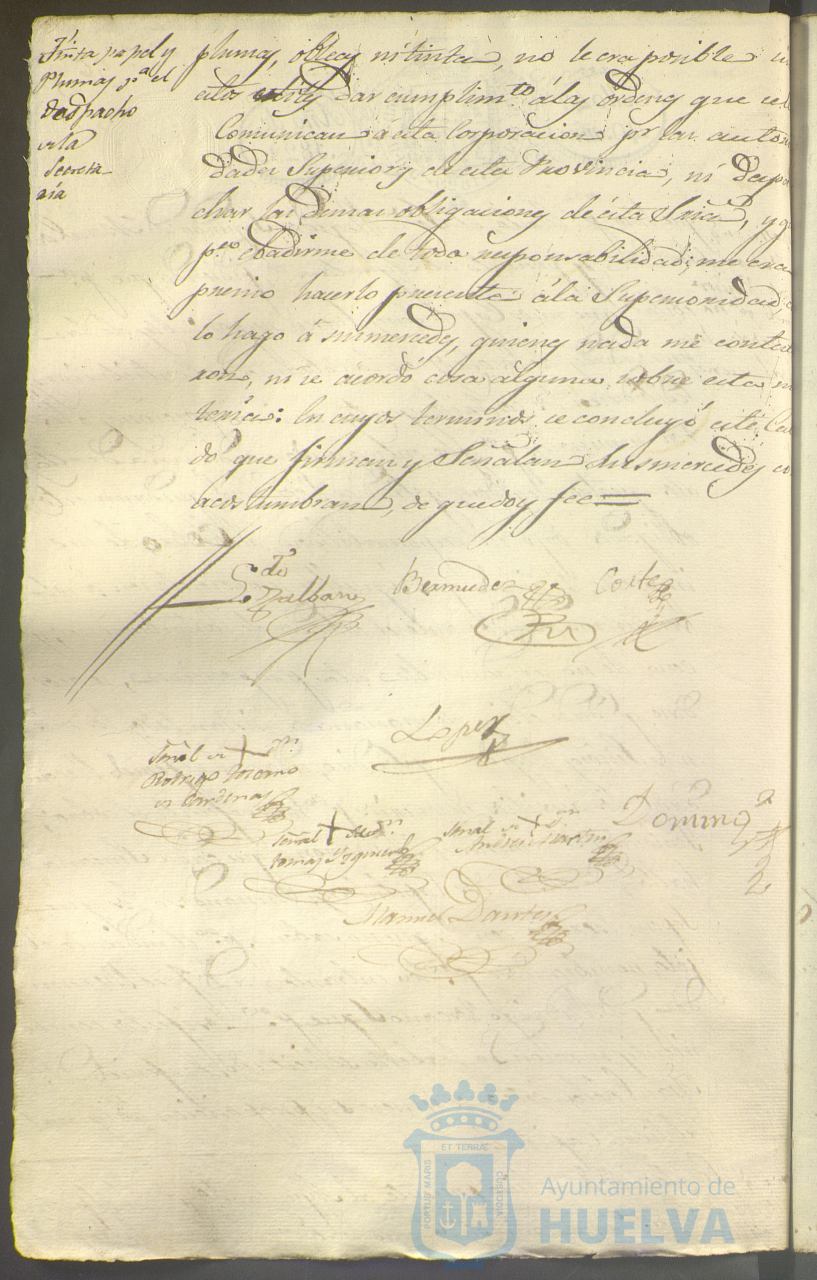 Tinta papel y
Plumas p.ª el
Despacho
de la
Secreta
ría
plumas, obleas ni tinta, no le era posible
dar cumplim.to á las ordenes que se le
Comunican á esta Corporacion p.r las autori
dades Superiores de esta Provincia, ni Despa
char las demas obligaciones de esta Sría, y q
p.a ebadirme de toda responsabilidad; me era
presiso hacerlo presente á la Superioridad,
lo hago á sus mercedes, quienes nada me contes
ron, ni se acordó cosa alguna sobre esta m
teria: En cuyos terminos se concluyó este Cav
do que firman y Señalan sus mercedes co
acostumbran, de que doy fee=
Bermudez
Cortes
Lopez
Señal de + D.n
Rodrigo
de Cardenas
Señal + de D.n
Tomas
Señal de + D.n
Andres Martin
Doming
Manuel Dantes
PORTUS MARIS
ET TERRÆ
CUSTODIA
Ayuntamiento de
HUELVA